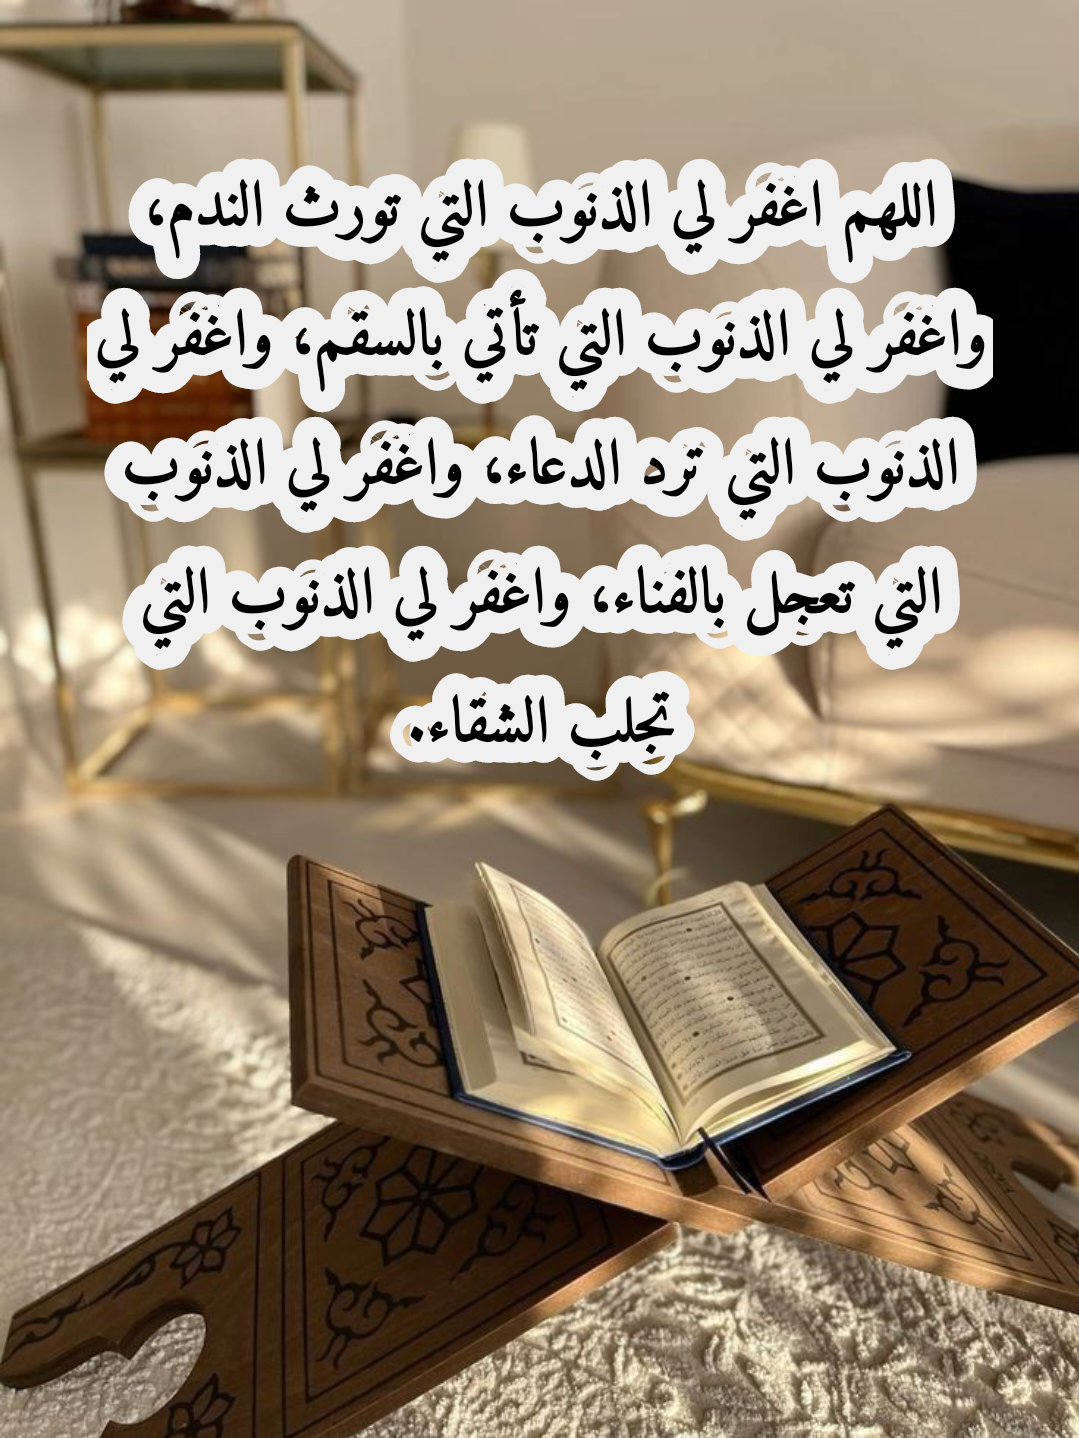 اللهم اغفر لي الذنوب التي تورث الندم،
واغفر لي الذنوب التي تأتي بالسقم، واغفر لي
الذنوب التي ترد الدعاء، واغفر لي الذنوب
التي تعجل بالفناء، واغفر لي الذنوب التي
تجلب الشقاء.